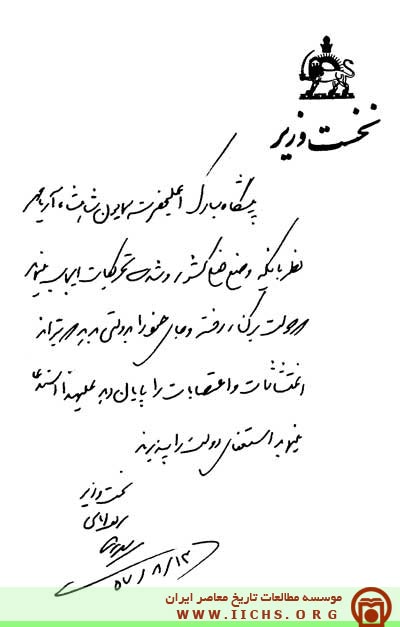 نخست وزیر
پیشگاه مبارک اعلیحضرت همایون شاهنشاه آریامهر
نظر باینکه وضع کشور و شدت تحریکات ایجاب مینماید
دولت برکنار رفته و جای خود را بدولتی بدهد که بتواند
اغتشاشات و اعتصابات را پایان دهد علیهذا استدعا
مینماید استعفای دولت را بپذیرند
نخست وزیر
۵۷/۸/۱۴
موسسه مطالعات تاریخ معاصر ایران
WWW.IICHS.ORG